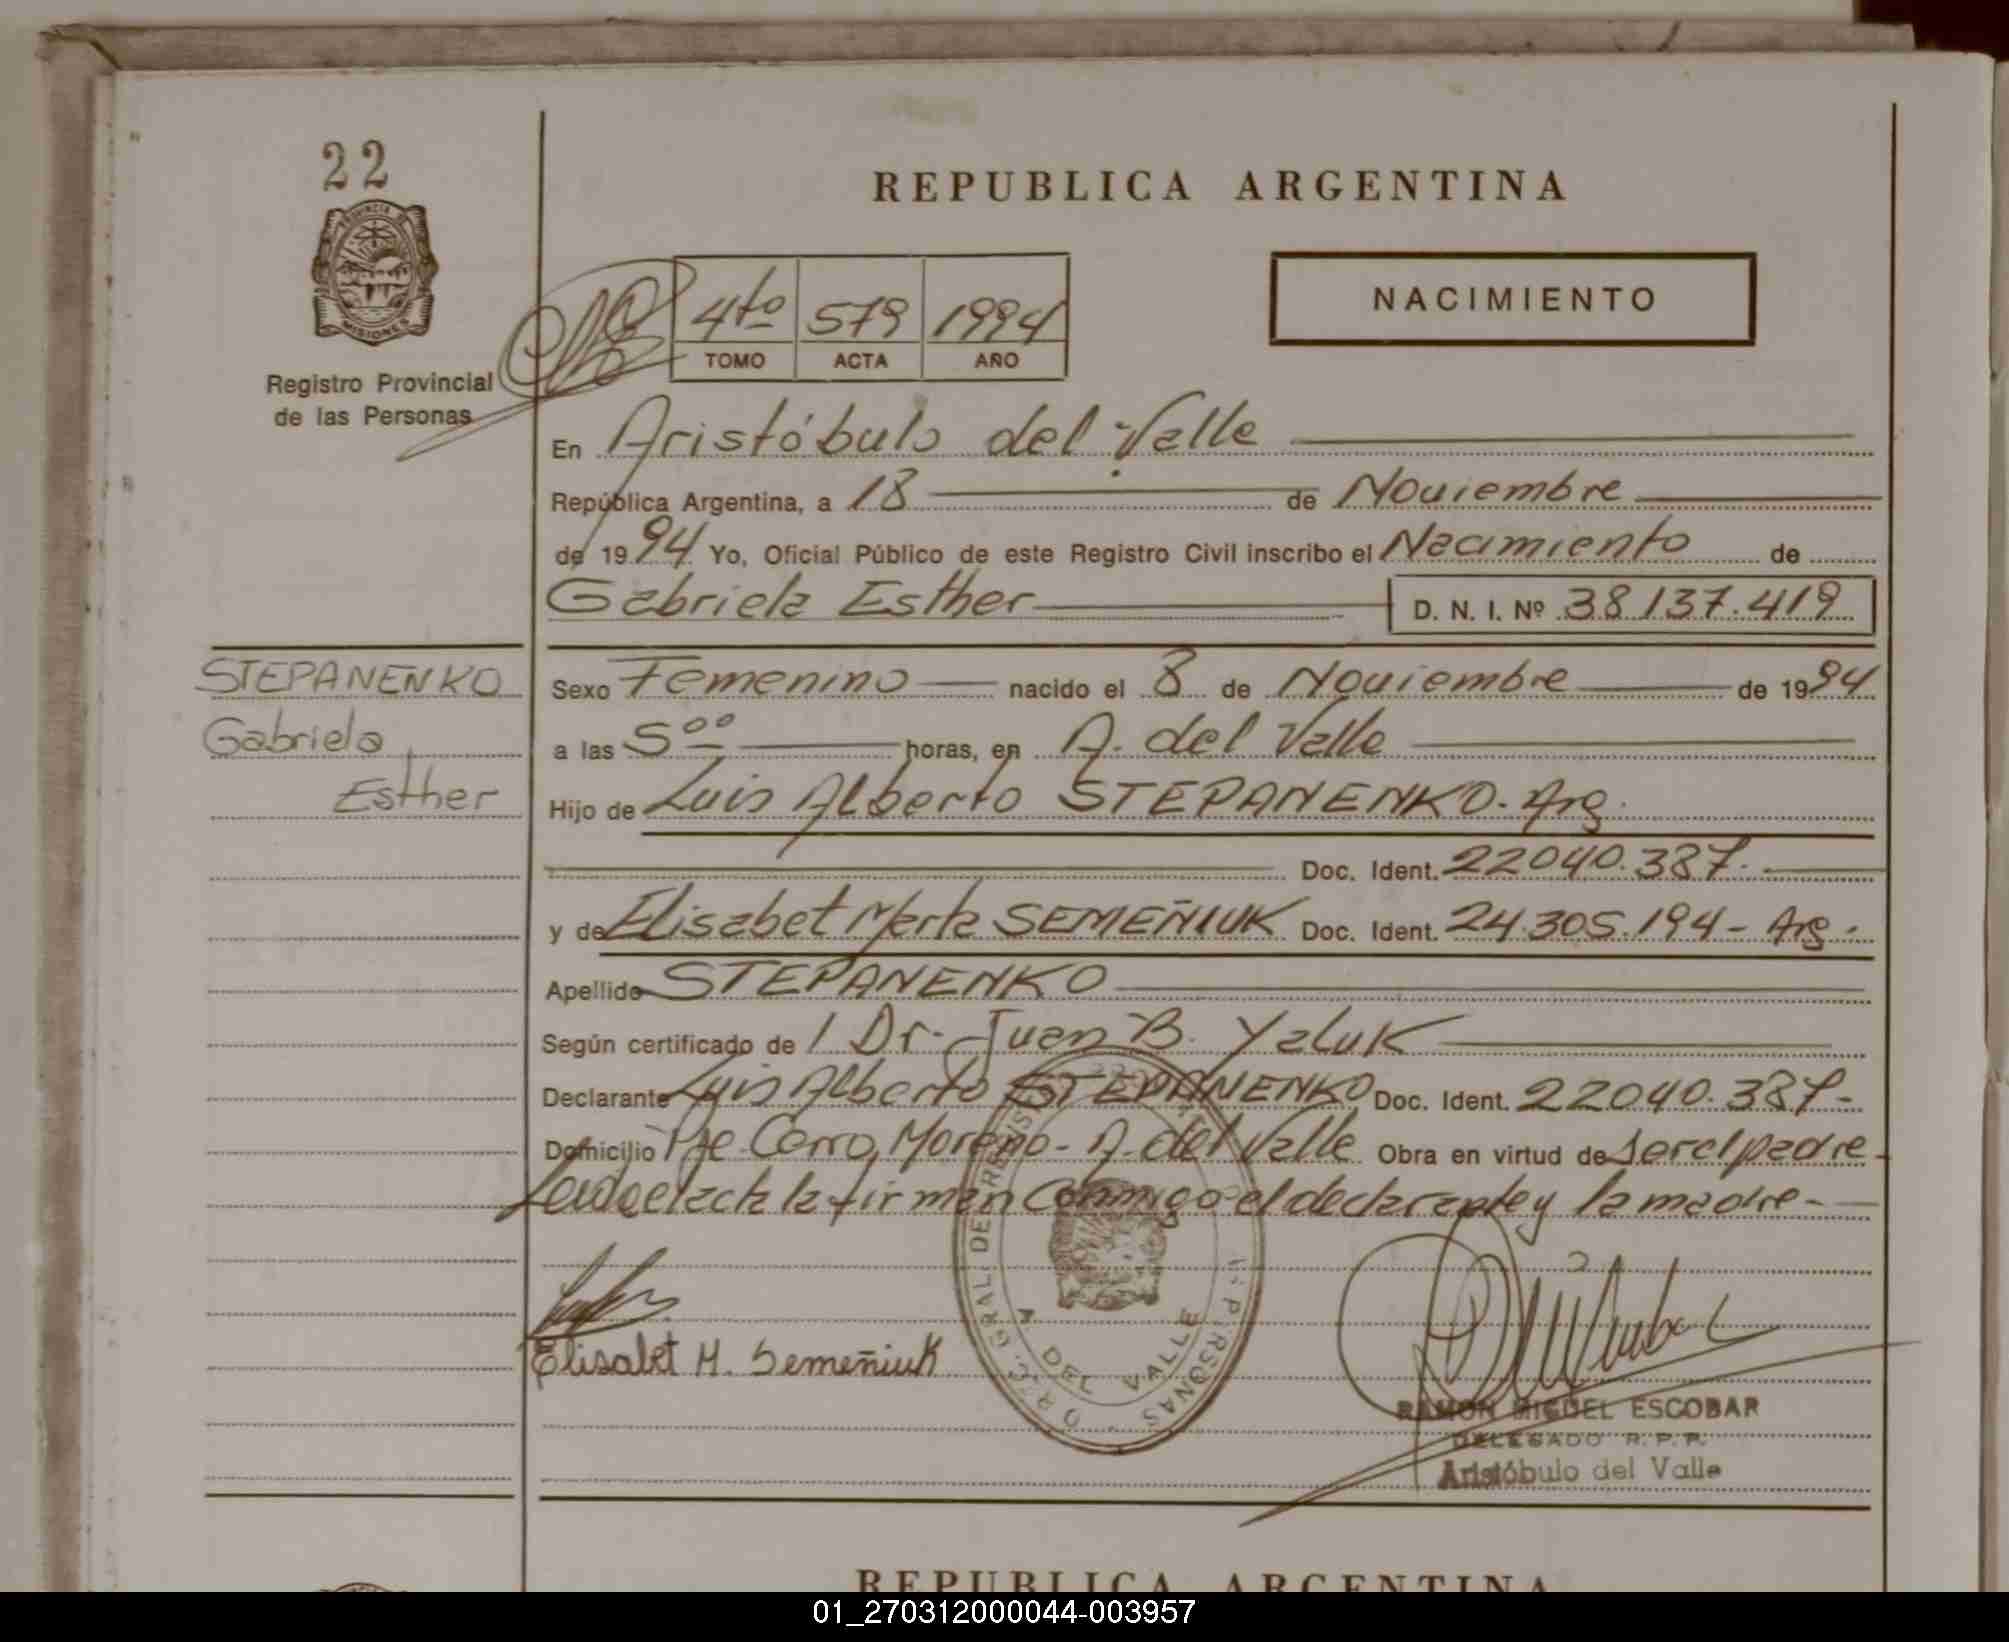 22
REPUBLICA ARGENTINA
PROVINCIA DE
MISIONES
Registro Provincial
de las Personas
4to 579 1994
TOMO ACTA AÑO
NACIMIENTO
En Aristóbulo del Valle
República Argentina, a 18 de Noviembre
de 1994 Yo, Oficial Público de este Registro Civil inscribo el Nacimiento de
Gabriela Esther D. N. I. Nº 38.137.419
STEPANENKO
Gabriela
Esther
Sexo Femenino nacido el 8 de Noviembre de 1994
a las 5oo horas, en A. del Valle
Hijo de Luis Alberto STEPANENKO. Arg.
Doc. Ident. 22040.387.
y de Elisabet Marta SEMEÑIUK Doc. Ident. 24.305.194 - Arg.
Apellido STEPANENKO
Según certificado de 1 Dr. Juan B. Yaluk
Declarante Luis Alberto STEPANENKO Doc. Ident. 22040.387-
Domicilio Pje. Cerro Moreno - A. del Valle Obra en virtud de ser el padre-
Leida el acta la firman conmigo el declarante y la madre-
Elisabet M. Semeñiuk
A. DEL VALLE
RAMON MIGUEL ESCOBAR
DELEGADO R.P.P.
Aristóbulo del Valle
REPUBLICA ARGENTINA
01_270312000044-003957